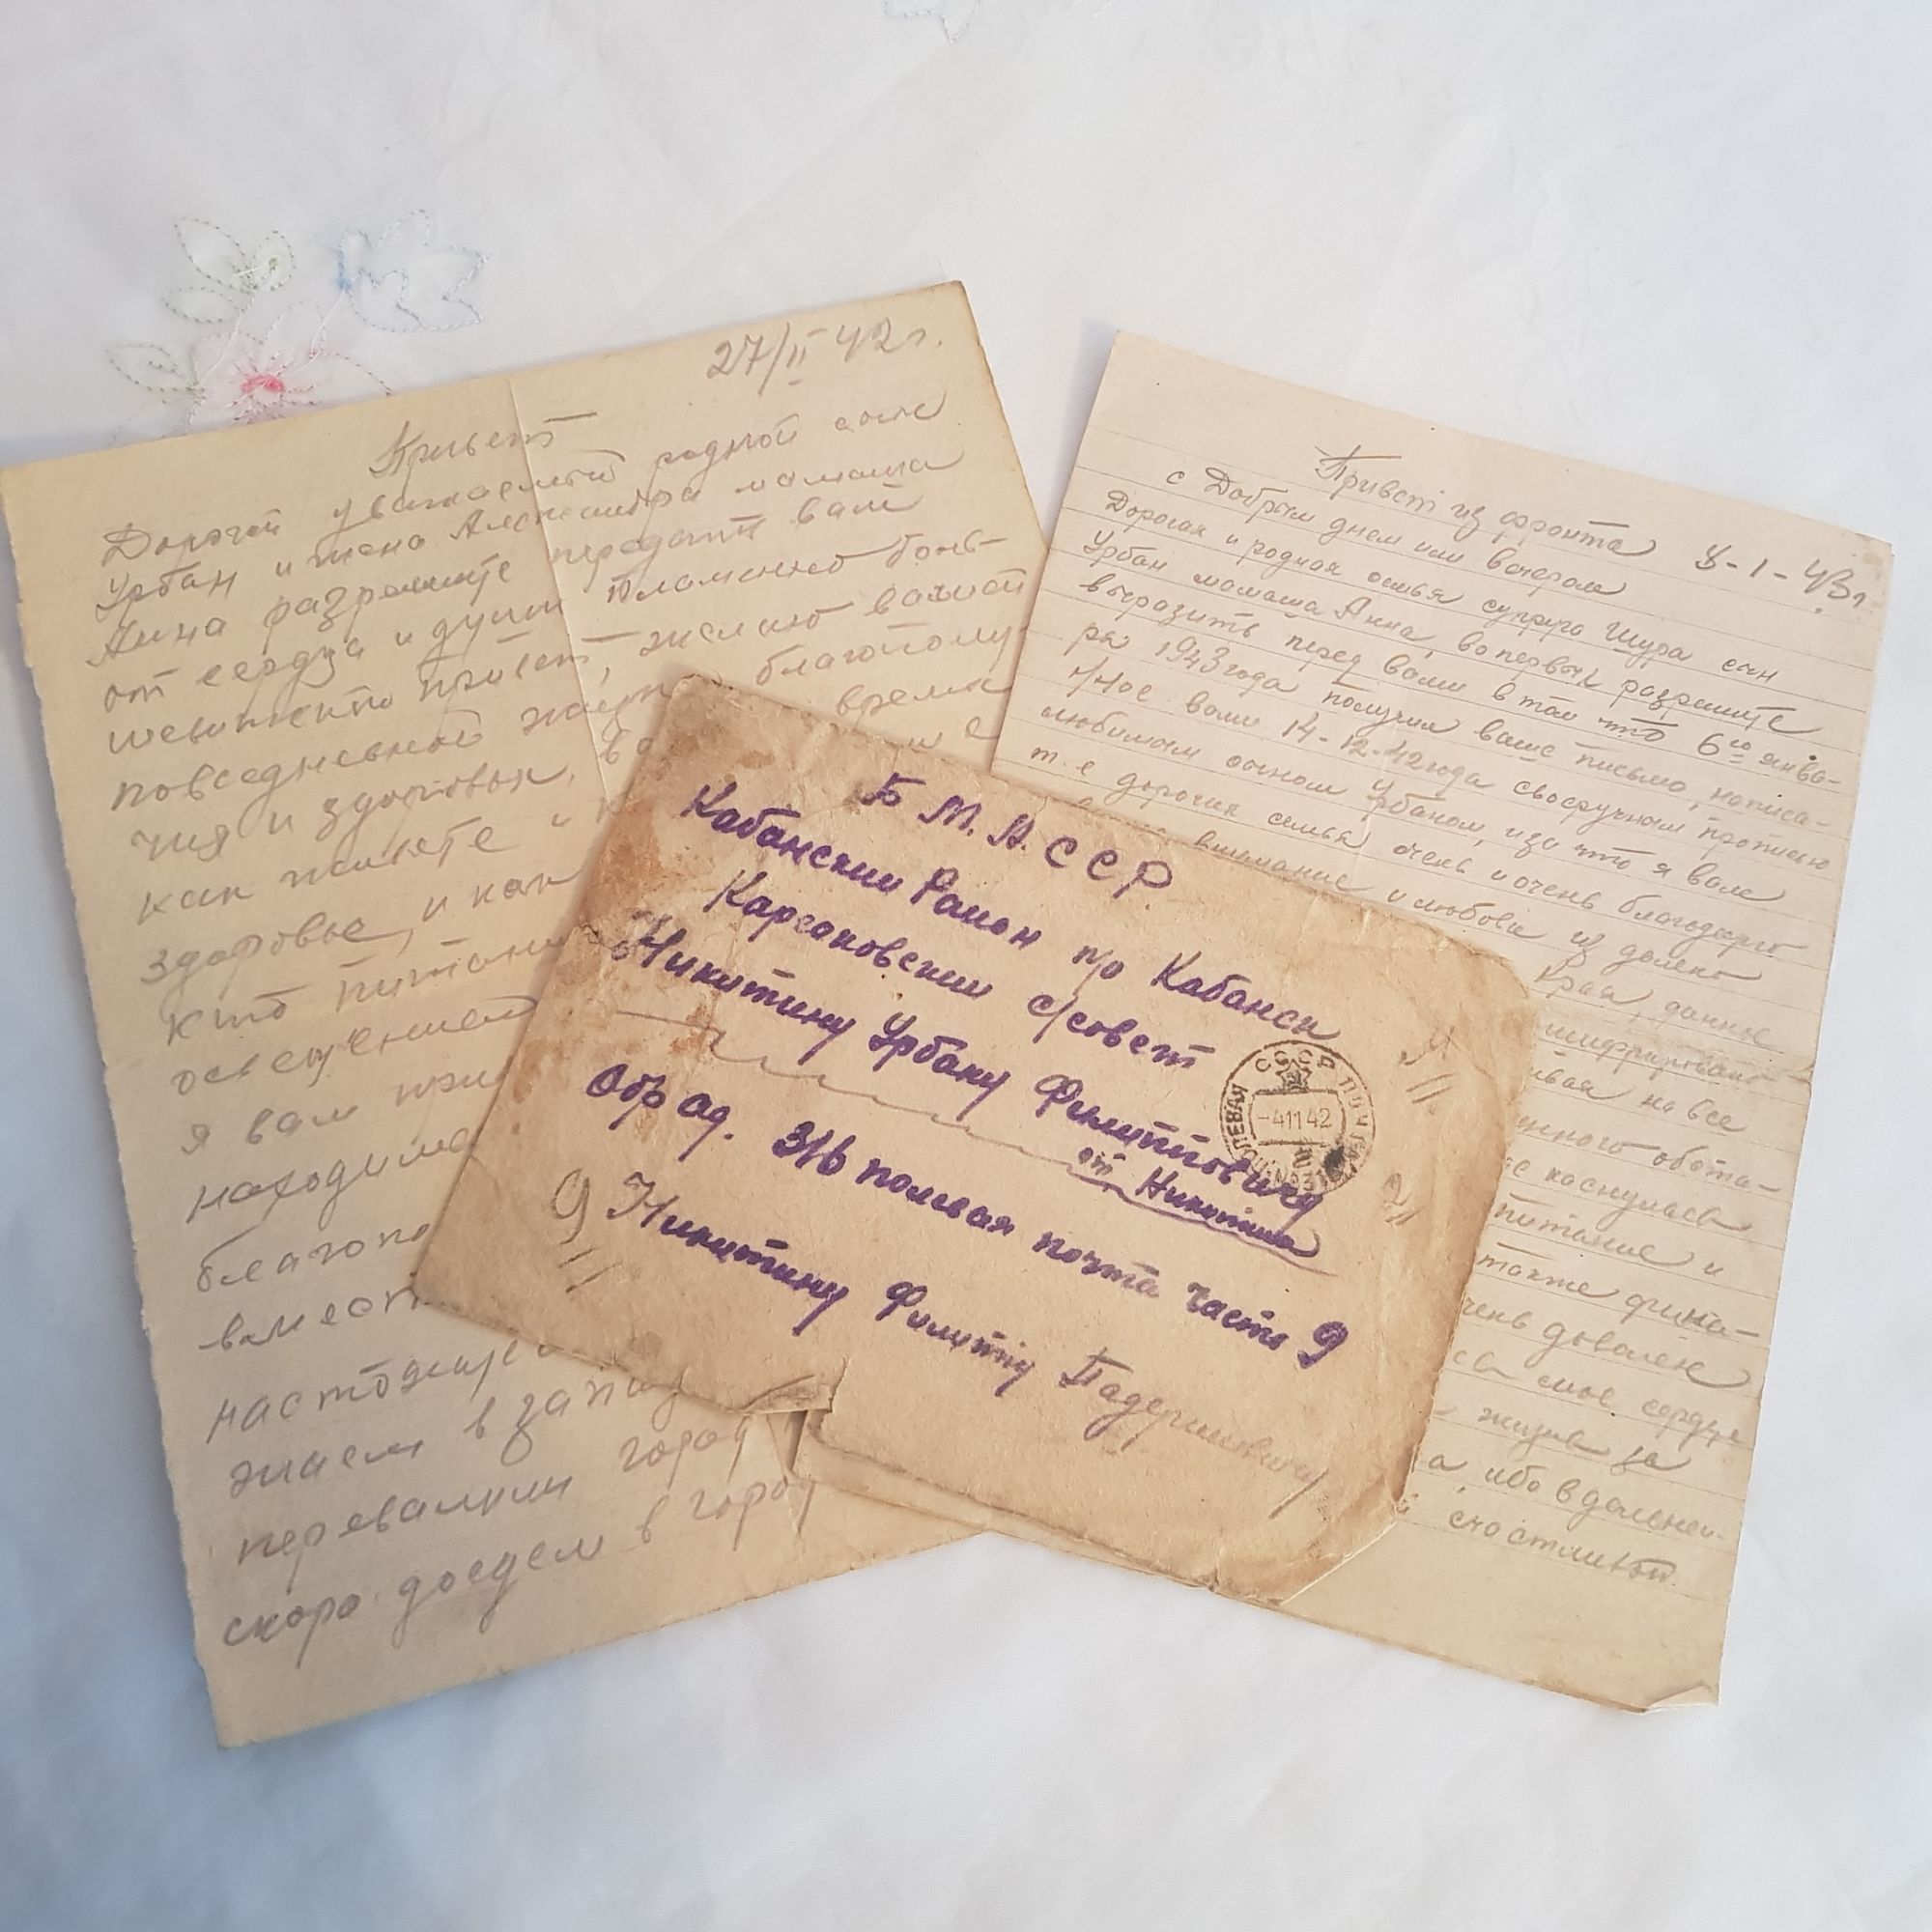 27/II 42 г.
Привет
Дорогой уважаемый родной сын
Урбан и жена Александра мамаша
Анна разрешите передать вам
от сердца и души пламенно боль-
шевитский привет, желаю вашей
повседневной благополу-
чия и здоровья, время
как живете и
здоровье, и как
кто питани
освещением
я вам
находимся
благопо
вместе
настоящее
знаем в
перевалили город
скоро доедем в город
Привет из фронта 8-1-43г
с Добрым днем или вечером
Дорогая и родная семья супруга Шура сын
Урбан мамаша Анна, во первых разрешите
выразить перед вами в том что 6го янва-
ря 1943 года получил ваше письмо, написа-
нное вами 14-12-42 года своеручным прописью
любимым сыном Урбаном, за что я вам
т.е дорогия семья очень и очень благодарю
внимание и любовь из далеко
Края, данное
на все
енного обста-
коснулась
питание и
также фина-
чень доволен
сь мое сердце
жизнь за
а, ибо в дальней-
счастливой
Б М. А. С С Р.
Кабанский Район п/о Кабанск
Карсаковский с/совет
Никитину Урбану Филипповичу
от Никитина
Обр ад. 316 полевая почта часть 9
Никитину Филиппу
СССР ПОЧТА
ПОЛЕВАЯ
-41142
9